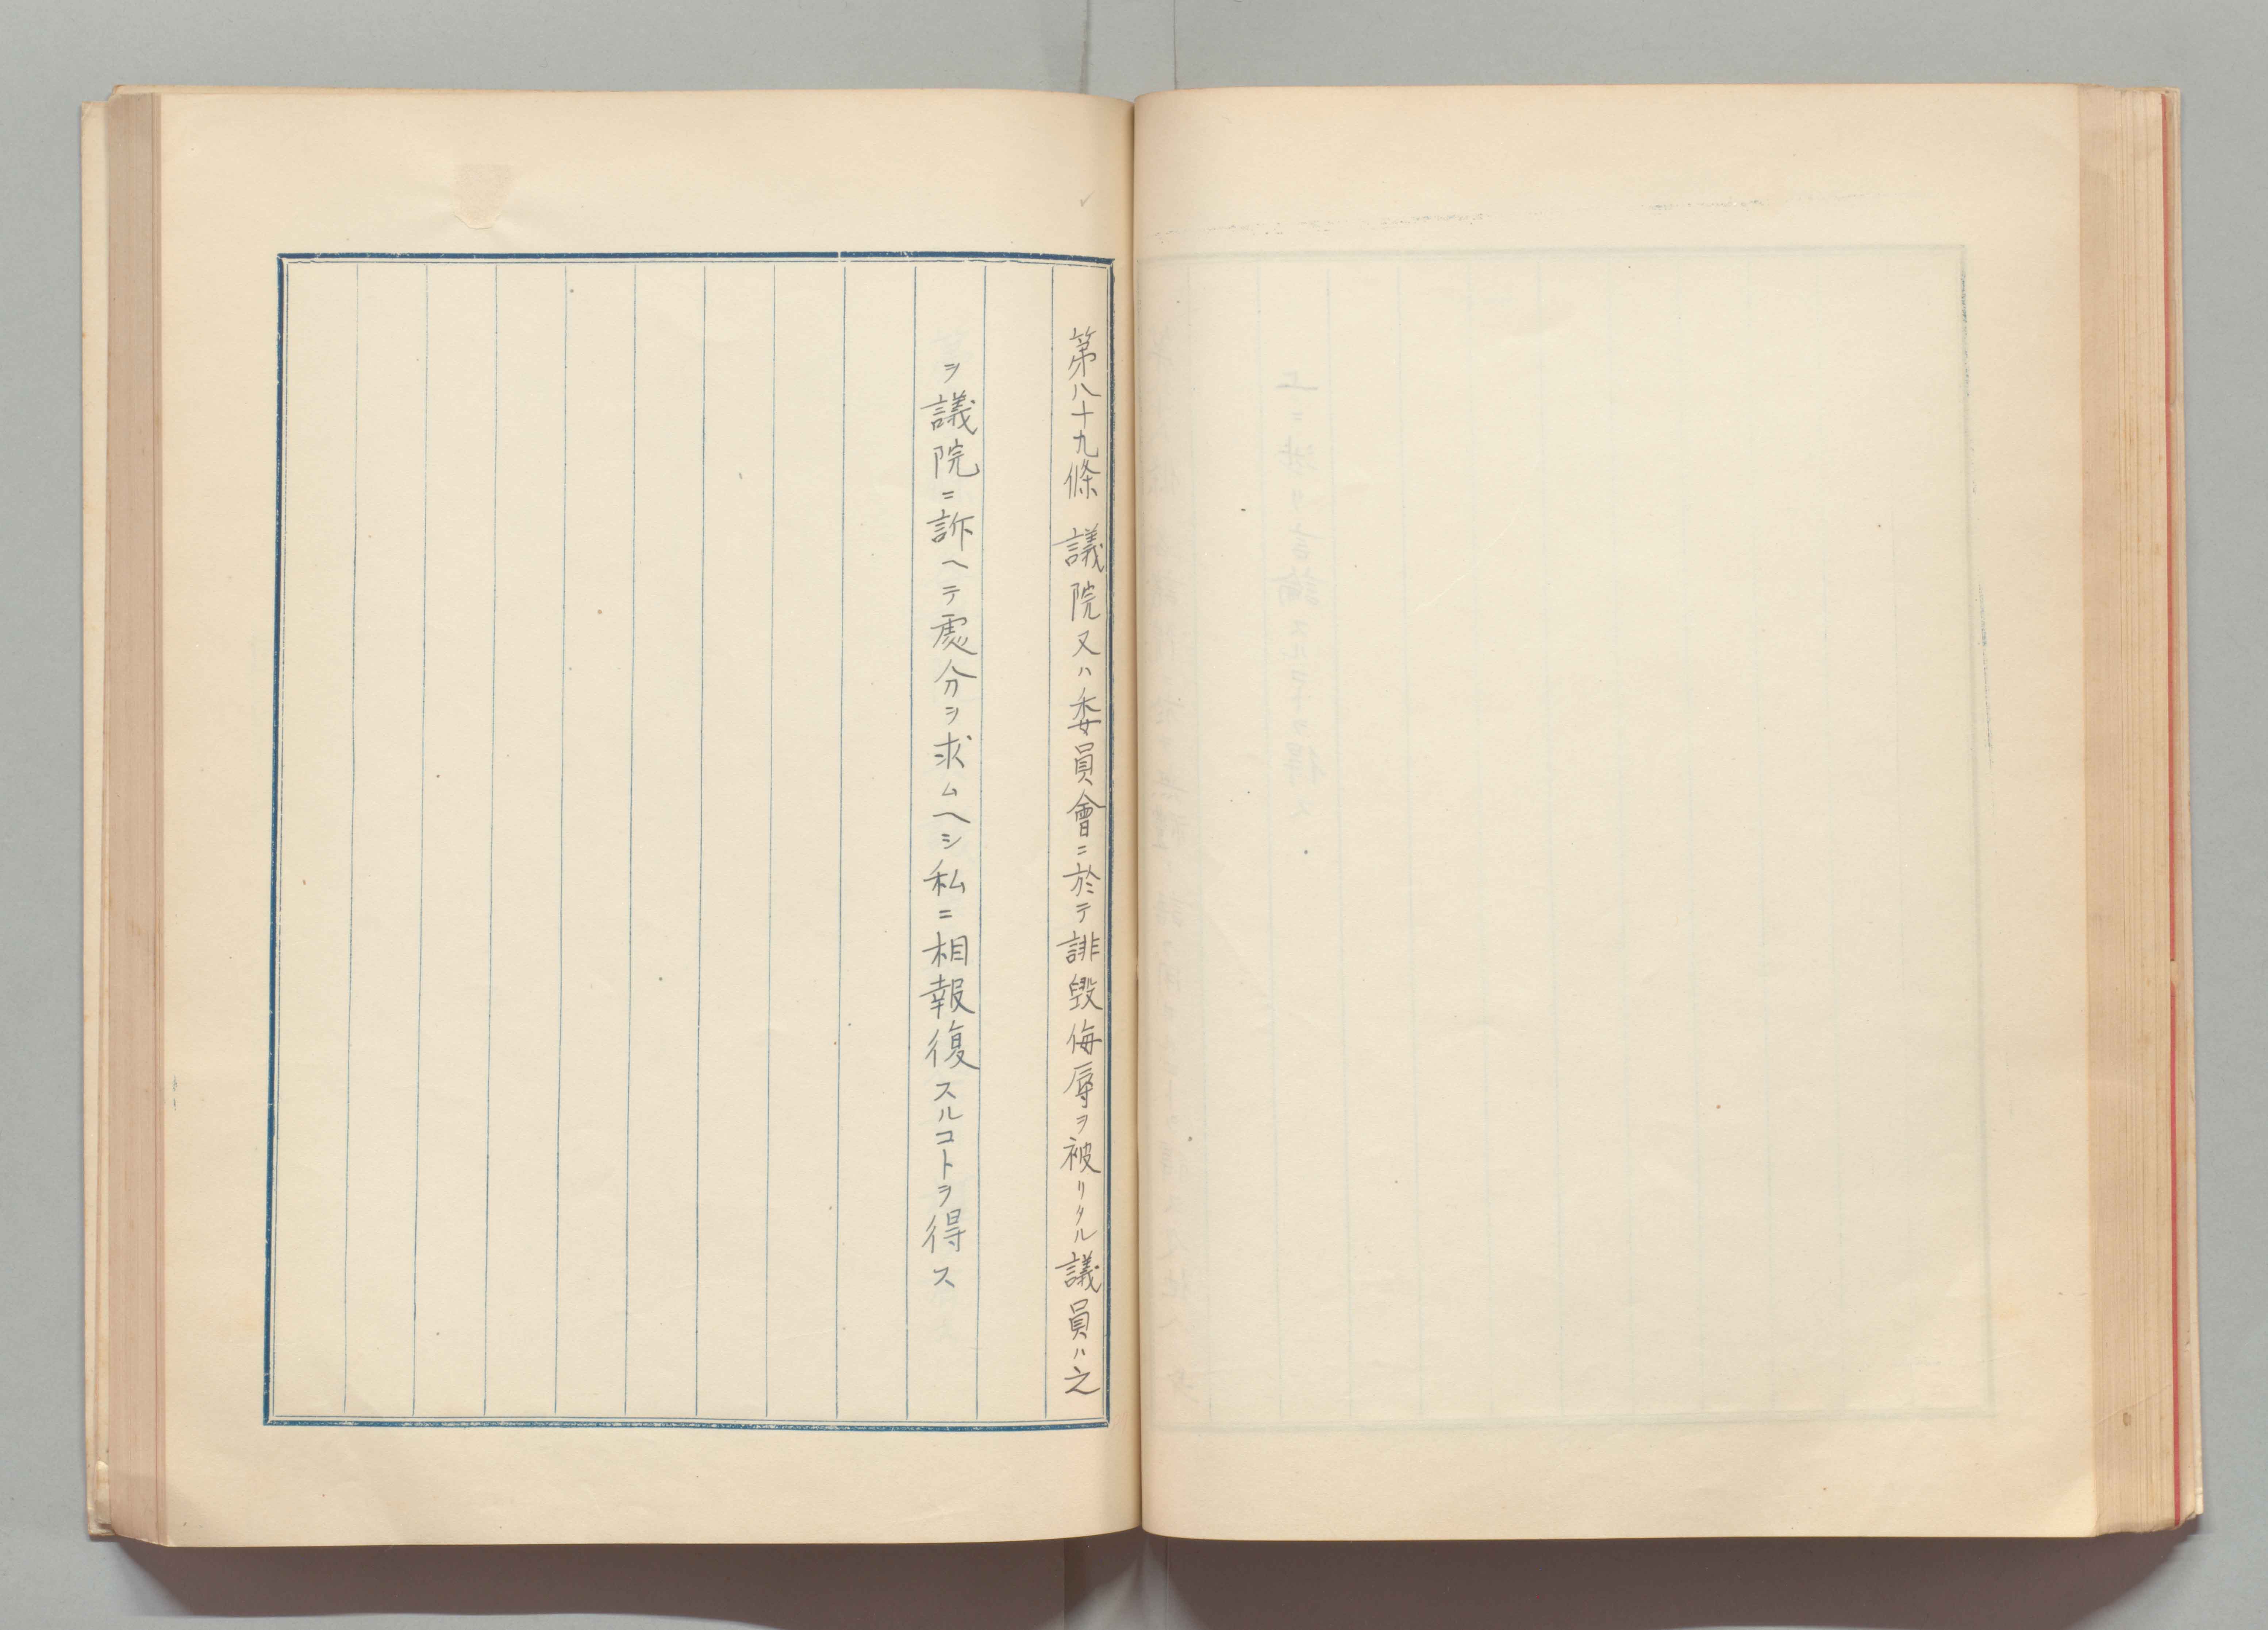 第八十九條　議院又ハ委員會ニ於テ誹毀侮辱ヲ被リタル議員ハ之
ヲ議院ニ訴ヘテ處分ヲ求ムヘシ私ニ相報復スルコトヲ得ス